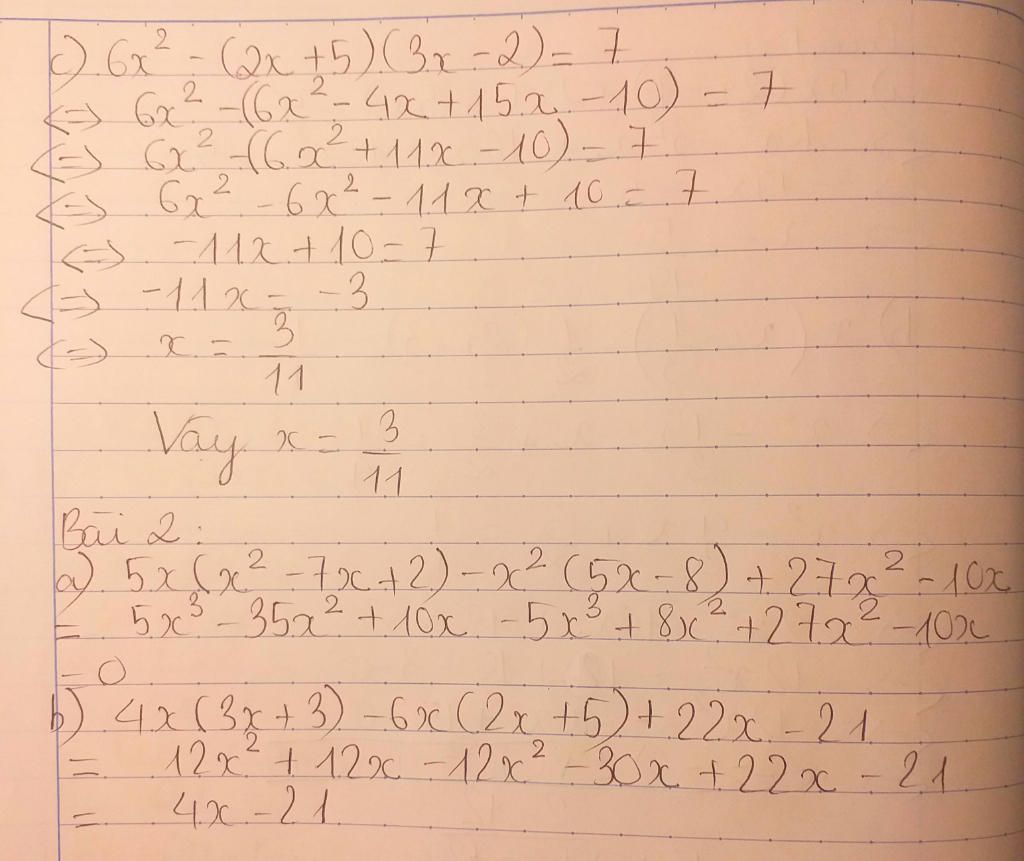 c) 6x² - (2x + 5)(3x - 2) = 7
<=> 6x² - (6x² - 4x + 15x - 10) = 7
<=> 6x² - (6x² + 11x - 10) = 7
<=> 6x² - 6x² - 11x + 10 = 7
<=> -11x + 10 = 7
<=> -11x = -3
<=> x = 3/11
Vậy x = 3/11
Bài 2:
a) 5x(x² - 7x + 2) - x² (5x - 8) + 27x² - 10x
= 5x³ - 35x² + 10x - 5x³ + 8x² + 27x² - 10x
= 0
b) 4x(3x + 3) - 6x(2x + 5) + 22x - 21
= 12x² + 12x - 12x² - 30x + 22x - 21
= 4x - 21